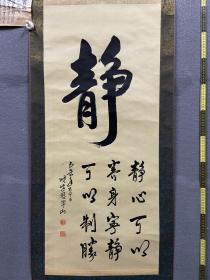 静
静心可以
寄身寧静
可以制勝